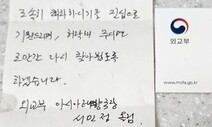 조속히 쾌차하시기를 진심으로
기원드리며, 허락해 주시면
조만간 다시 찾아뵙도록
하겠습니다.
외교부 아시아태평양국장
서민정 올림
외교부
www.mofa.go.kr